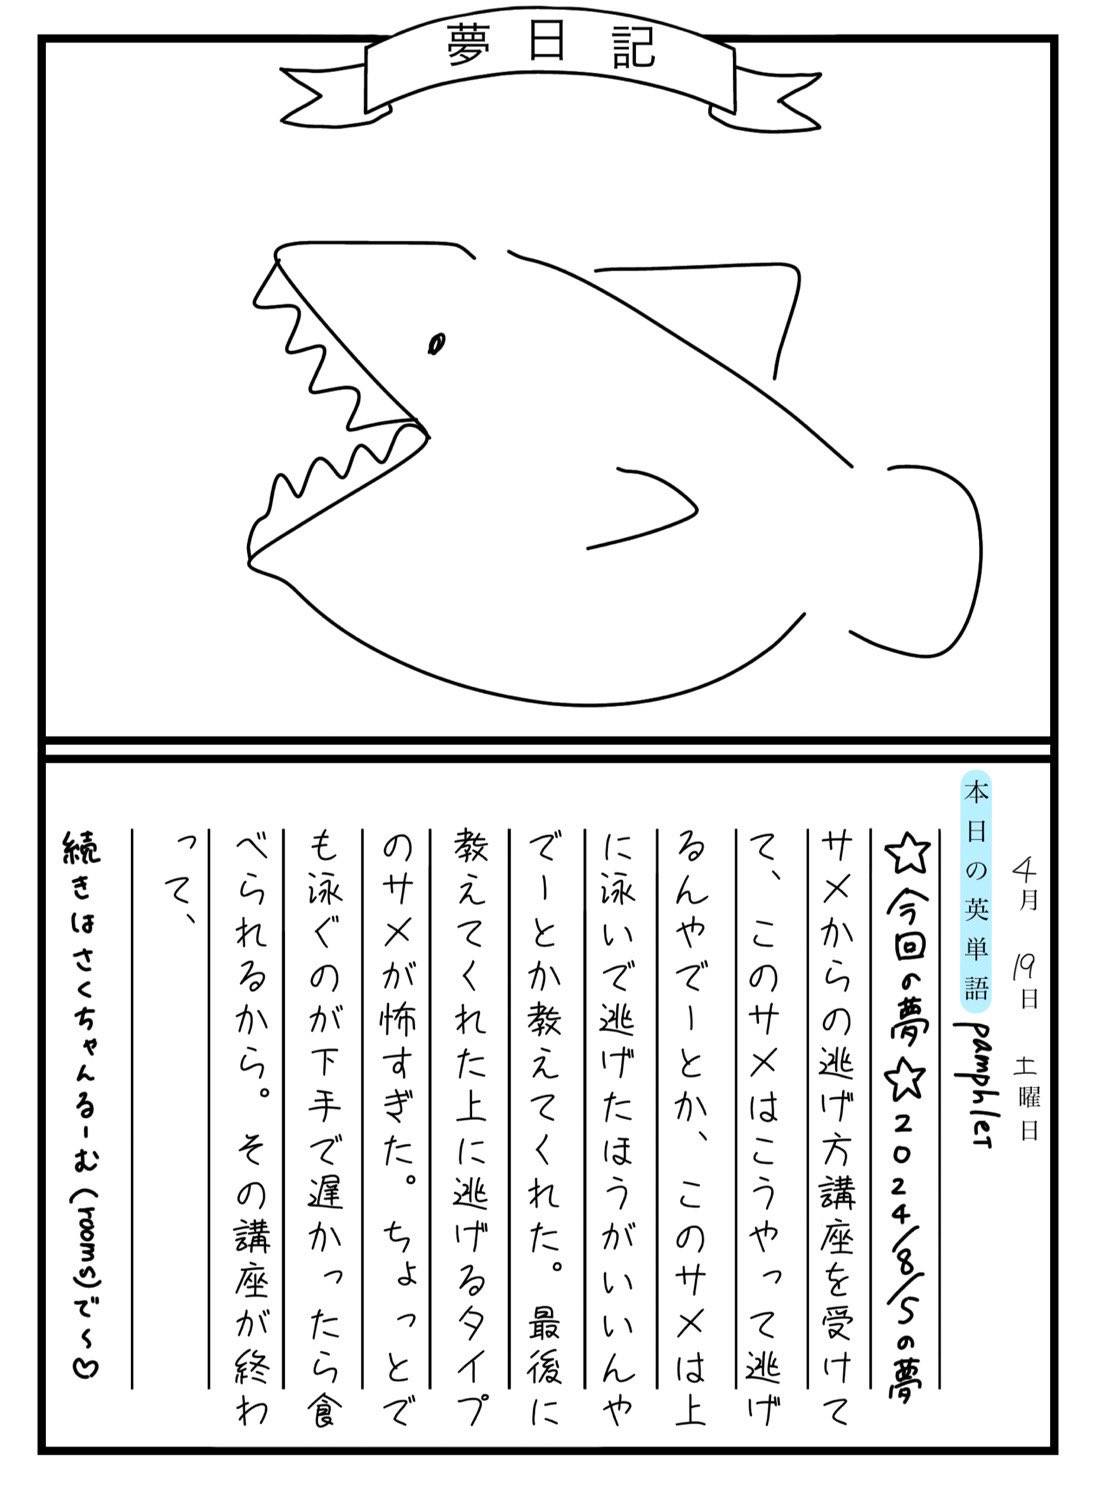 夢日記
4月19日土曜日
本日の英単語 pamphlet
☆今回の夢☆2024/8/5の夢
サメからの逃げ方講座を受けて
て、このサメはこうやって逃げ
るんやでーとか、このサメは上
に泳いで逃げたほうがいいんや
でーとか教えてくれた。最後に
教えてくれた上に逃げるタイプ
のサメが怖すぎた。ちょっとで
も泳ぐのが下手で遅かったら食
べられるから。その講座が終わ
って、
続きはさくちゃんるーむ(rooms)で~♡